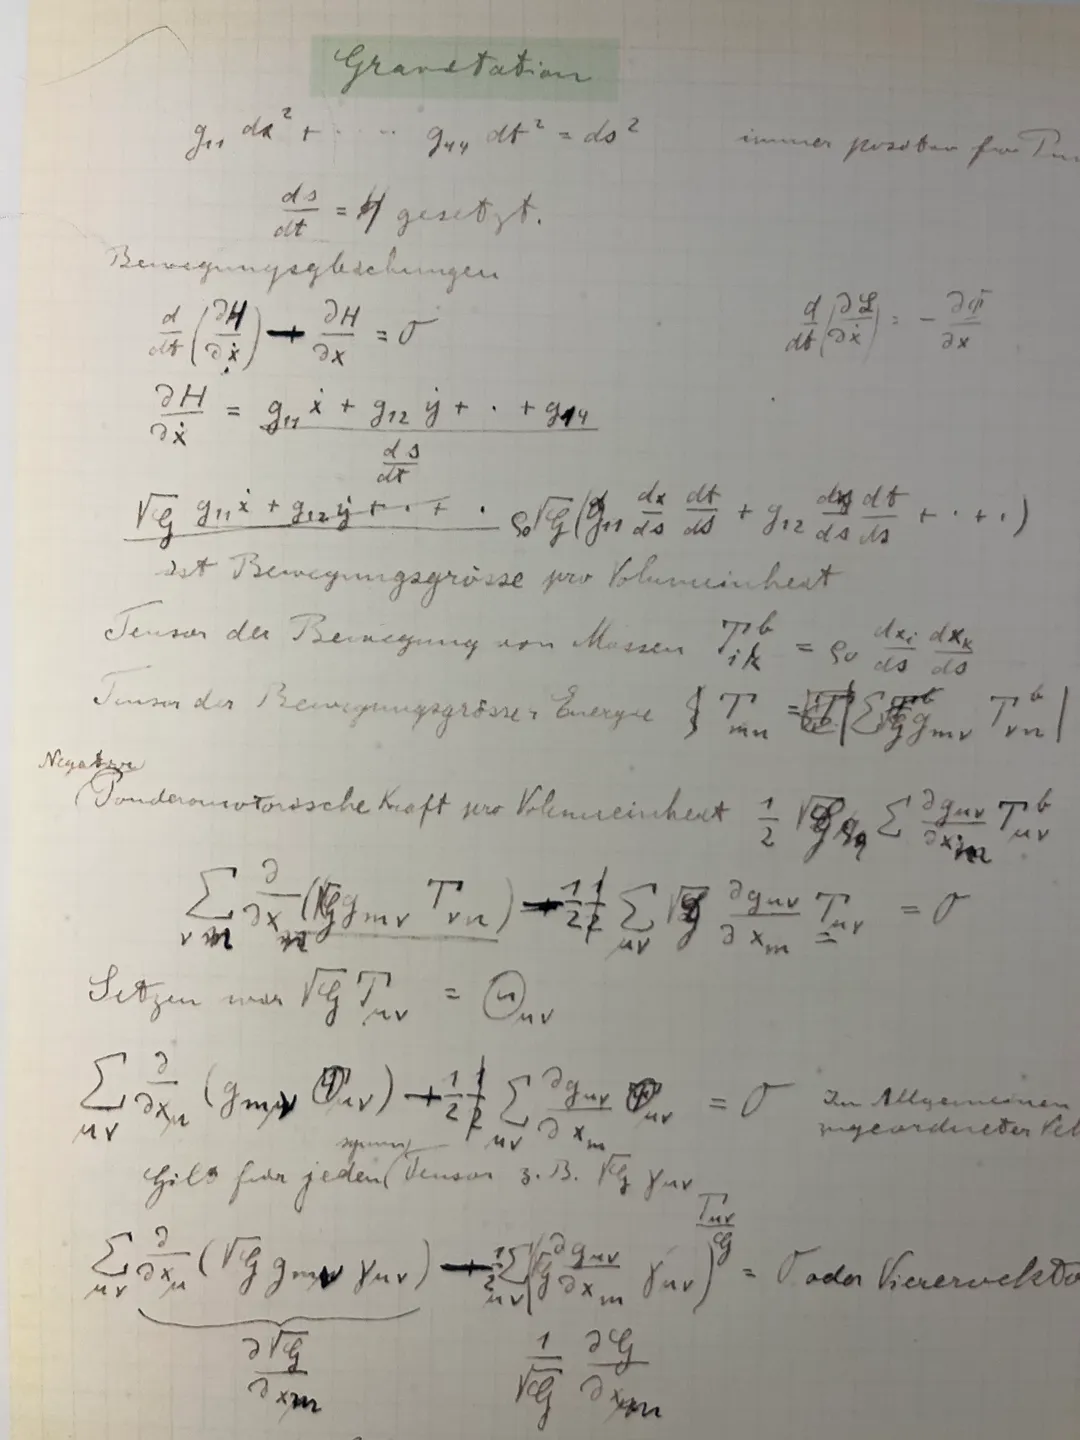 Gravitation
g₁₁ dx² + · · · · g₄₄ dt² = ds² immer positiv für
ds/dt = H gesetzt.
Bewegungsgleichungen
d/dt (∂H/∂ẋ) − ∂H/∂x = 0 d/dt (∂L/∂ẋ) = − ∂Φ/∂x
∂H/∂ẋ = (g₁₁ ẋ + g₁₂ ẏ + · + g₁₄) / (ds/dt)
√G g₁₁ẋ + g₁₂ẏ + · + · ρ₀√G (g₁₁ dx/ds dt/ds + g₁₂ dy/ds dt/ds + · + ·)
ist Bewegungsgrösse pro Volumeinheit
Tensor der Bewegung von Massen Tᵇᵢₖ = ρ₀ dxᵢ/ds dxₖ/ds
Tensor der Bewegungsgrösse u. Energie Tₘₙ = Σ √G gₘᵥ Tᵇᵥₙ
Negative
Ponderomotorische Kraft pro Volumeinheit 1/2 √G Σ ∂gμν/∂xₘ Tᵇμν
Σνn ∂/∂xₙ (√G gₘν Tνn) − 1/2 Σμν √G ∂gμν/∂xₘ Tμν = 0
Setzen wir √G Tμν = Θμν
Σμν ∂/∂xμ (gₘν Θμν) − 1/2 Σμν ∂gμν/∂xₘ Θμν = 0 Im Allgemeinen
zugeordneter
symm.
Gilt für jeden Tensor z. B. √G γμν
Tμν/G
Σμν ∂/∂xμ (√G gₘν γμν) − 1/2 Σμν (√G ∂gμν/∂xₘ γμν) = 0 oder
∂√G/∂xₘ 1/√G ∂G/∂xₘ